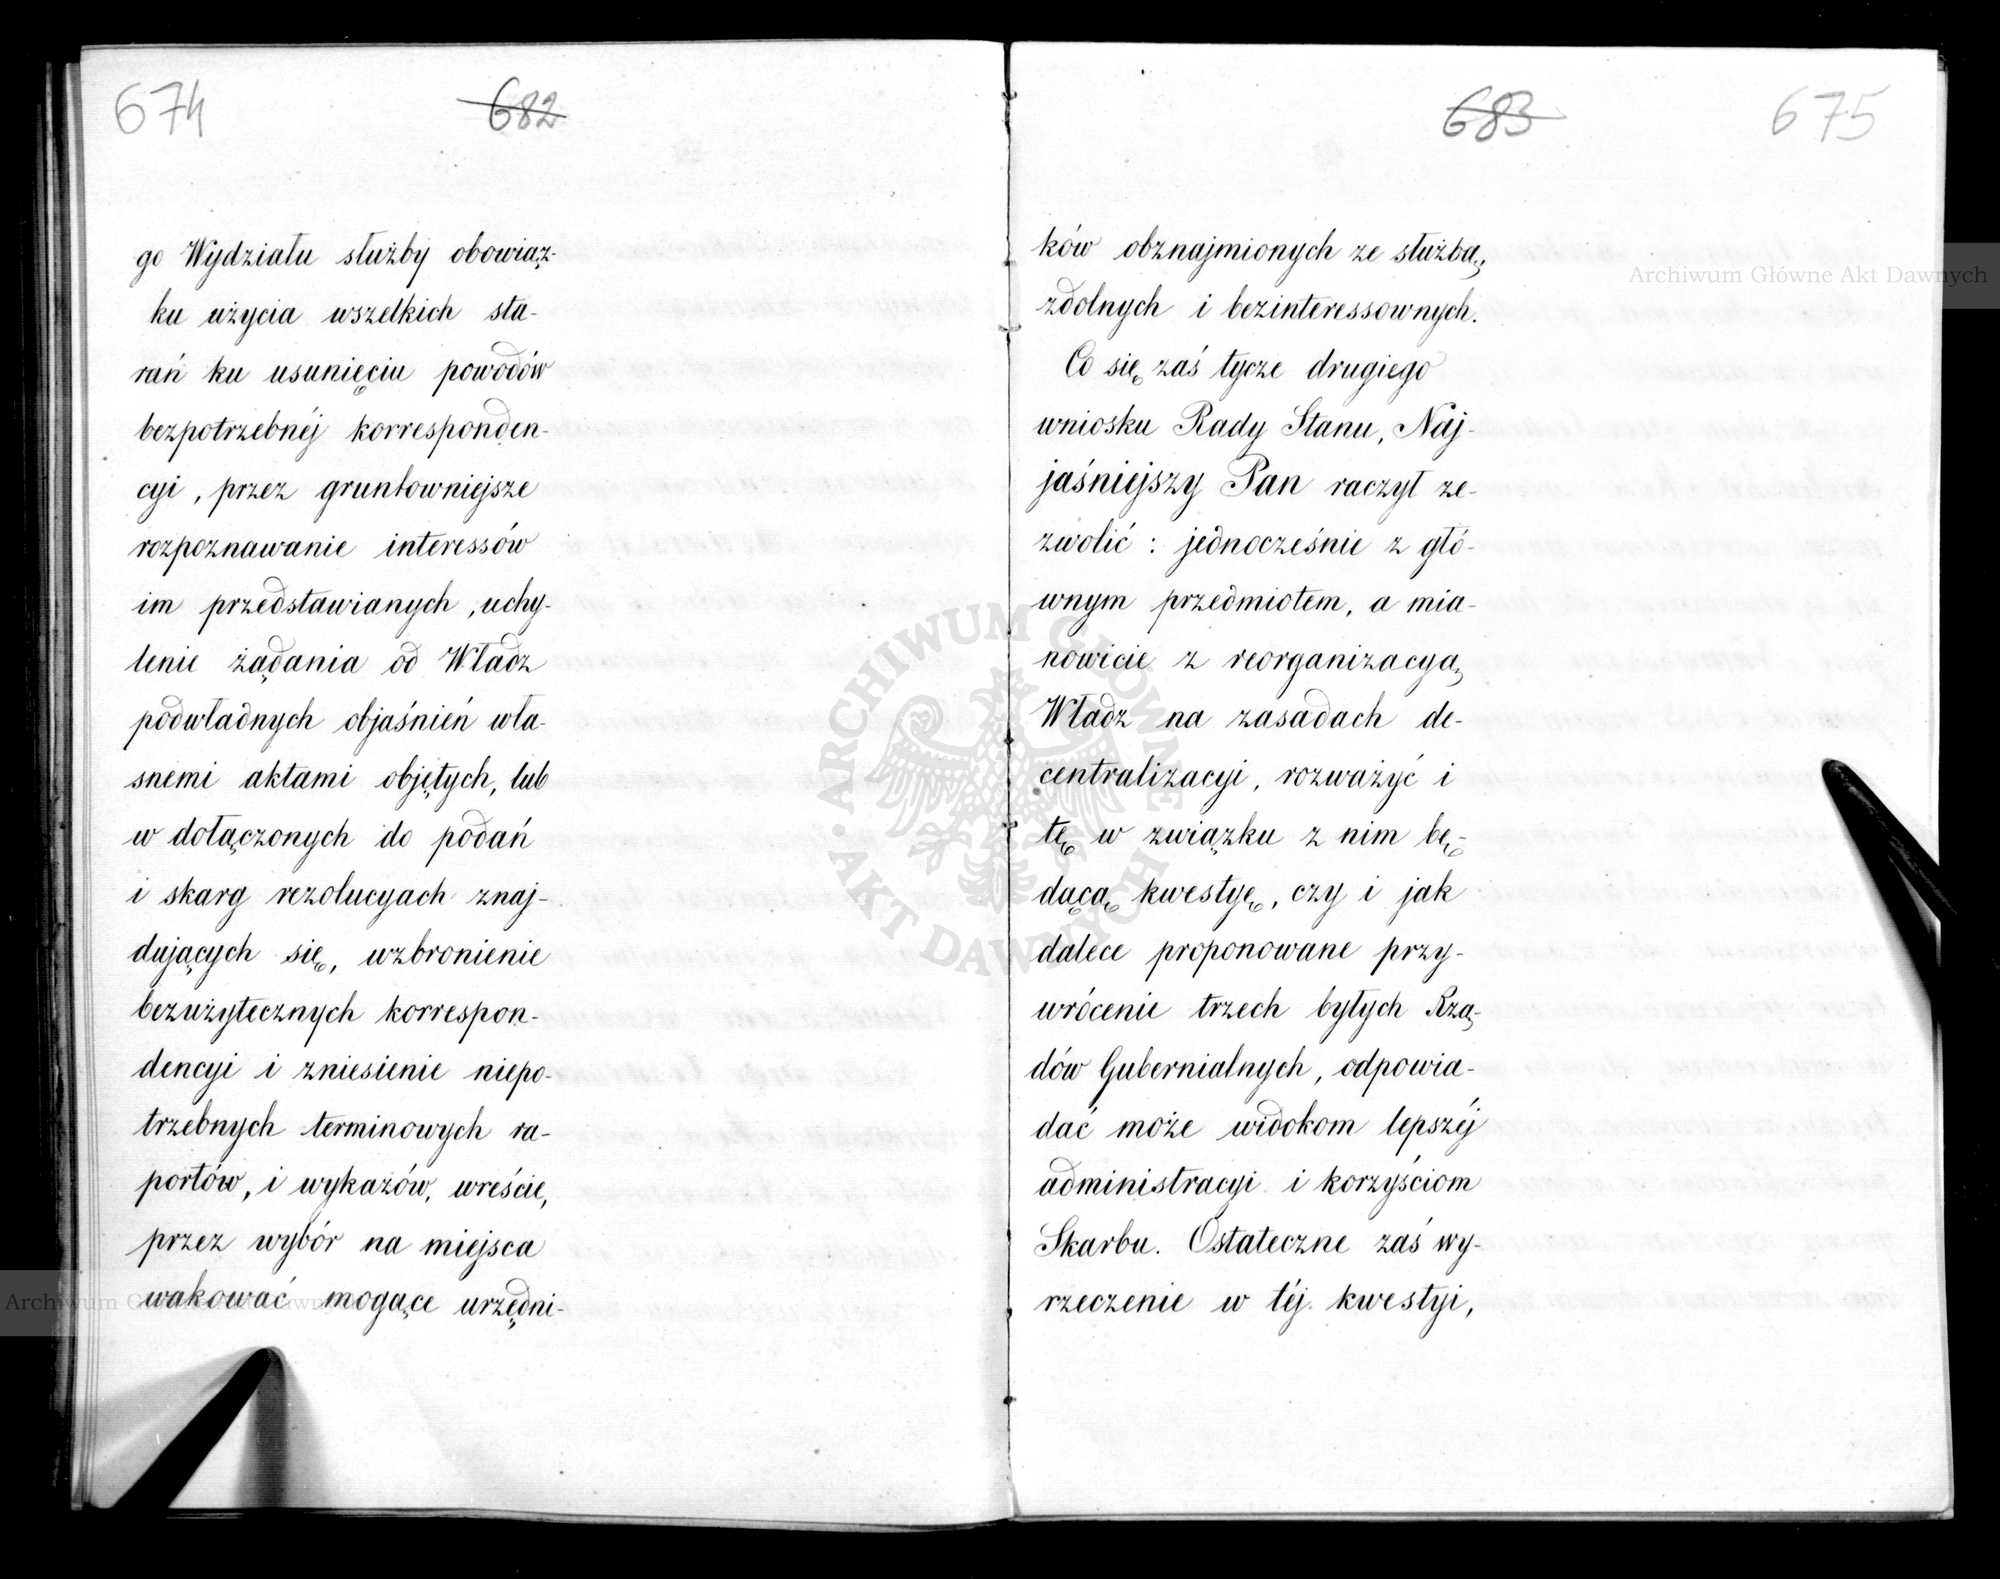 674
682
go Wydziału służby obowiąz-
ku użycia wszelkich sta-
rań ku usunięciu powodów
bezpotrzebnéj korresponden-
cyi, przez gruntowniejsze
rozpoznawanie interessów
im przedstawianych, uchy-
lenie żądania od Władz
podwładnych objaśnień wła-
snemi aktami objętych, lub
w dołączonych do podań
i skarg rezolucyach znaj-
dujących się, wzbronienie
bezużytecznych korrespon-
dencyi i zniesienie niepo-
trzebnych terminowych ra-
portów, i wykazów, wreście,
przez wybór na miejsca
wakować mogące urzędni-
683
675
ków obznajmionych ze służbą,
zdolnych i bezinteressownych.
Co się zaś tycze drugiego
wniosku Rady Stanu, Naj-
jaśniejszy Pan raczył ze-
zwolić: jednocześnie z głó-
wnym przedmiotem, a mia-
nowicie z reorganizacyą
Władz na zasadach de-
centralizacyi, rozważyć i
tę w związku z nim bę-
dącą kwestyę, czy i jak
dalece proponowane przy-
wrócenie trzech byłych Rzą-
dów Gubernialnych, odpowia-
dać może widokom lepszéj
administracyi i korzyściom
Skarbu. Ostateczne zaś wy-
rzeczenie w téj kwestyi,
Archiwum Główne Akt Dawnych
ARCHIWUM GŁÓWNE
AKT DAWNYCH
Archiwum Główne Akt Dawnych